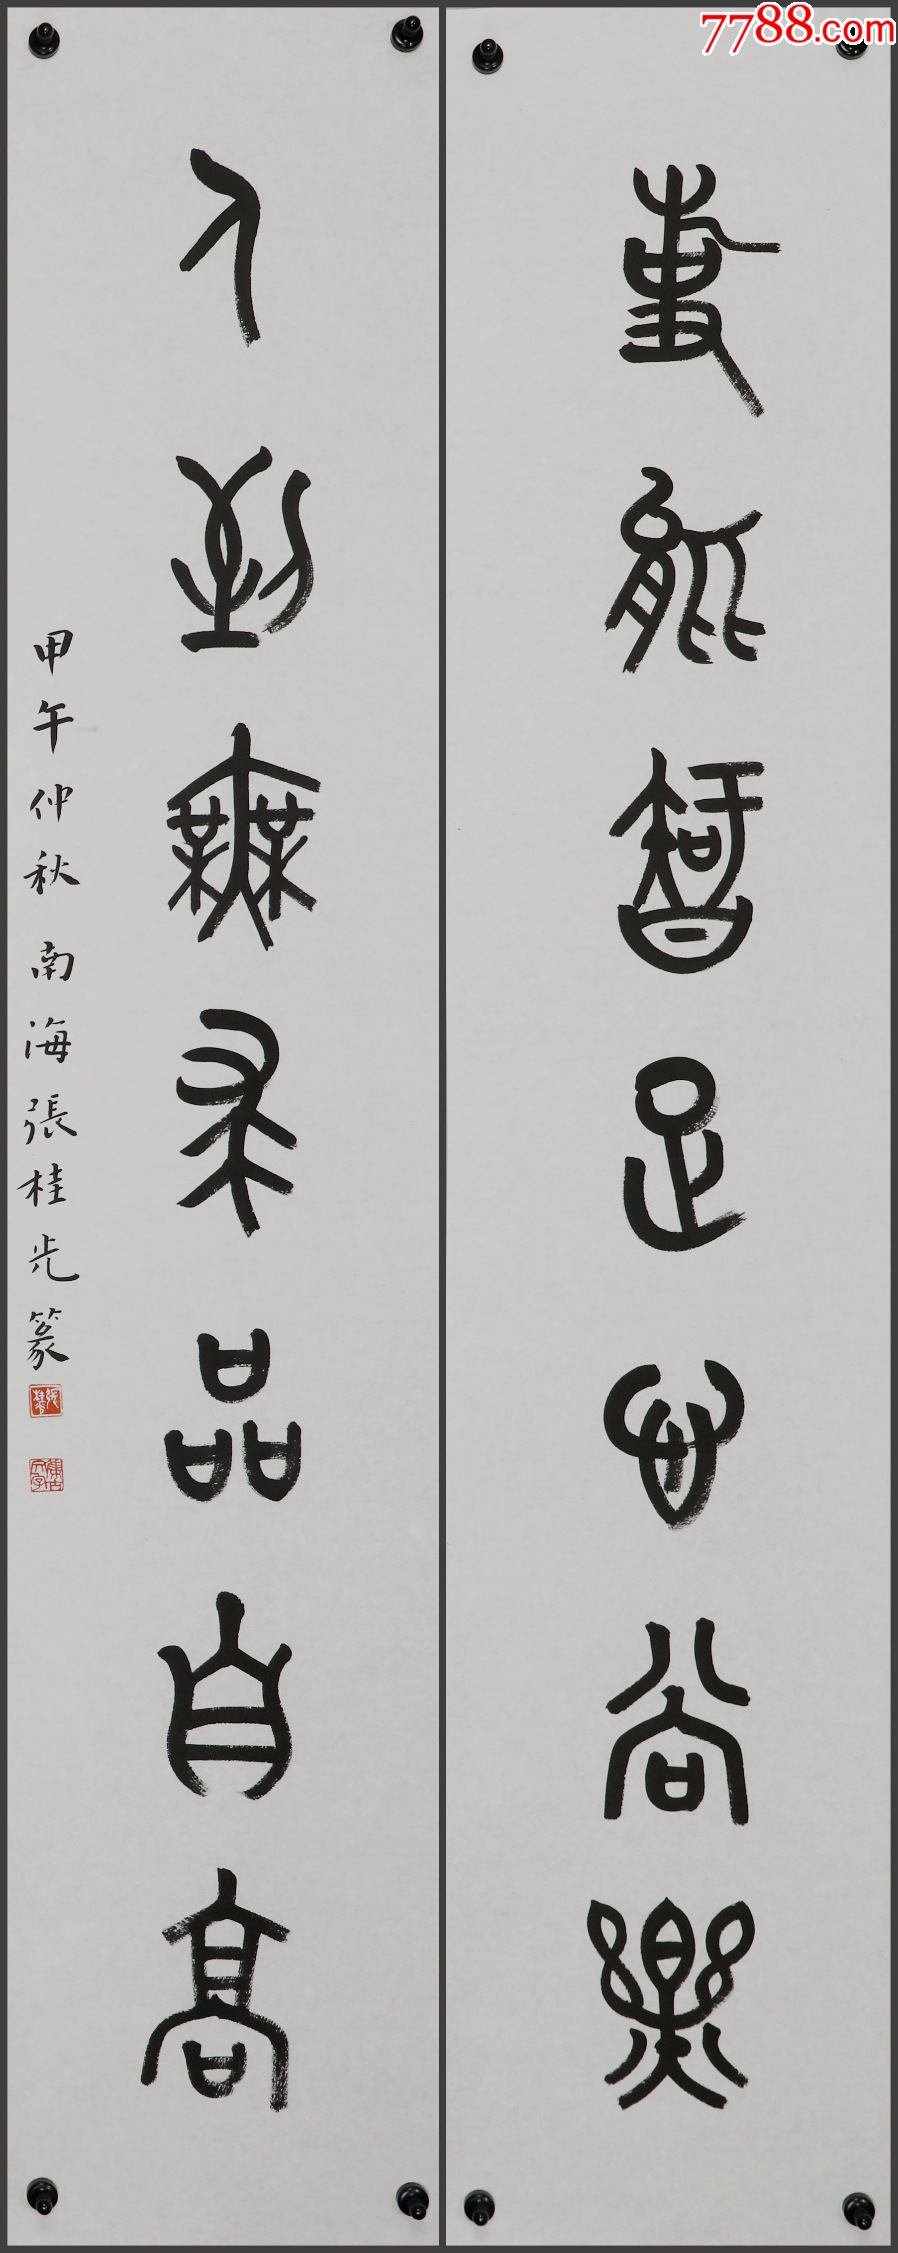 7788.com
事能知足心常樂
人到無求品自高
甲午仲秋南海張桂光篆